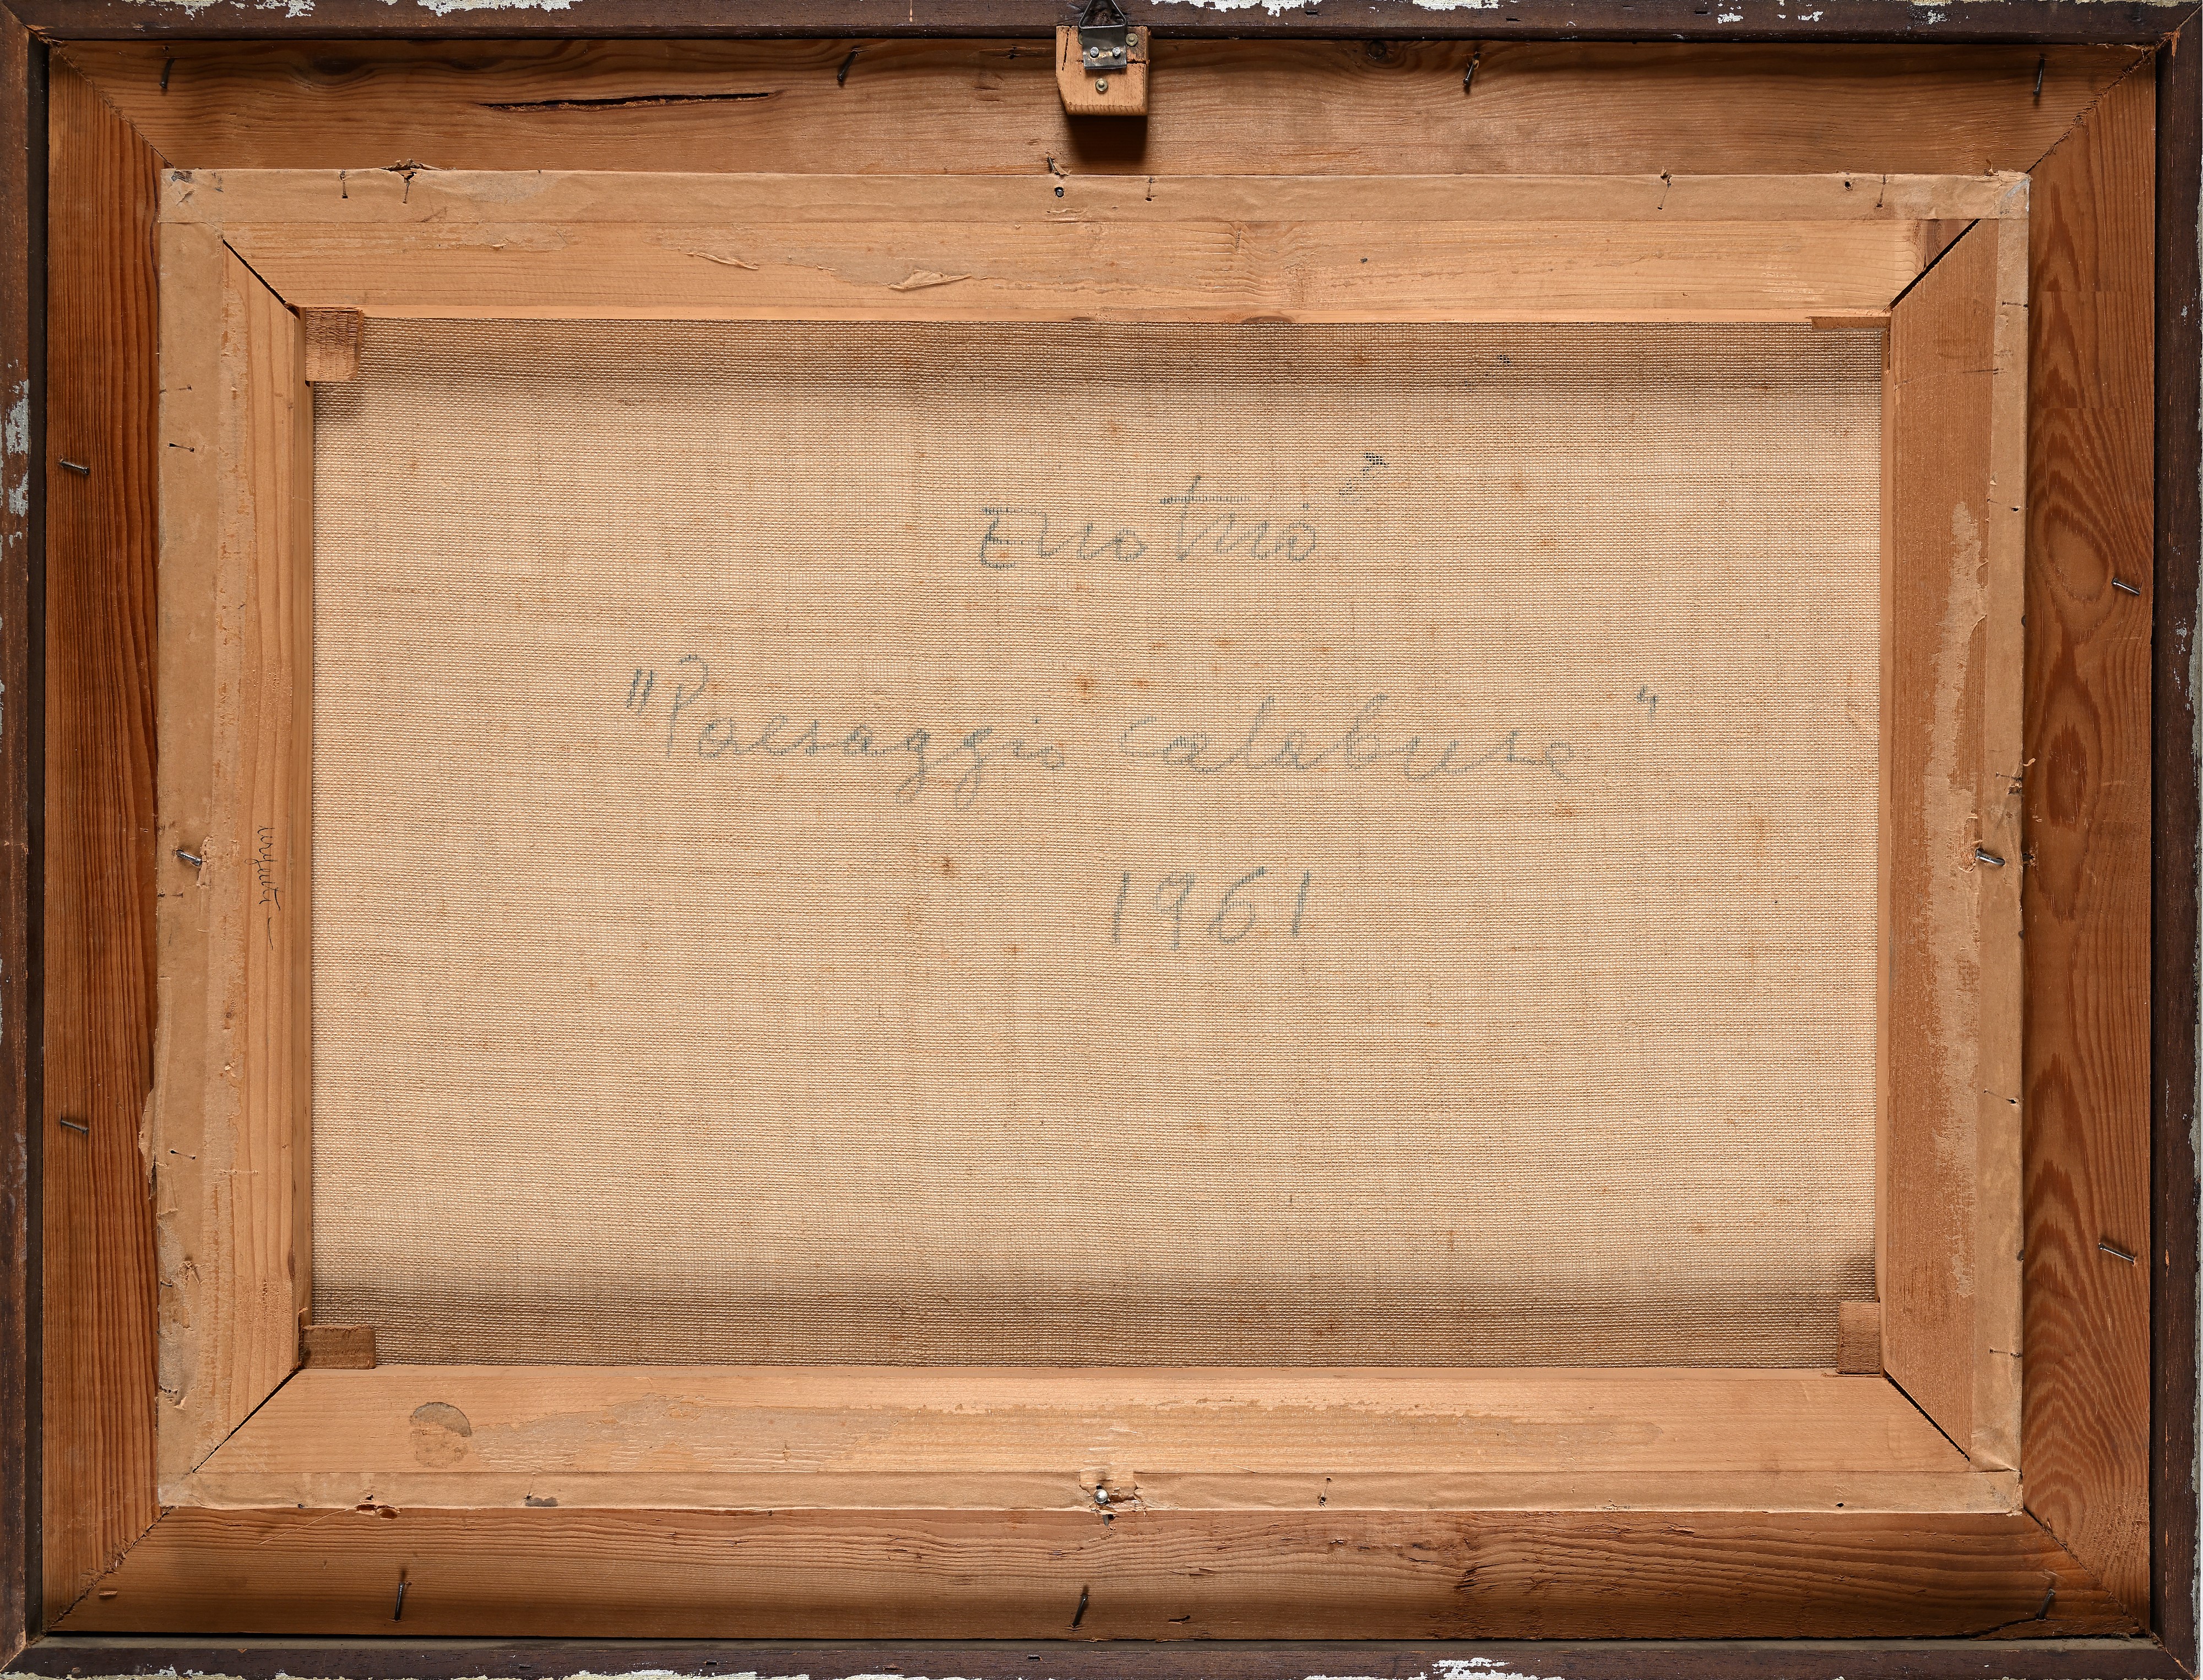 Enotrio
"Paesaggio calabrese"
1961